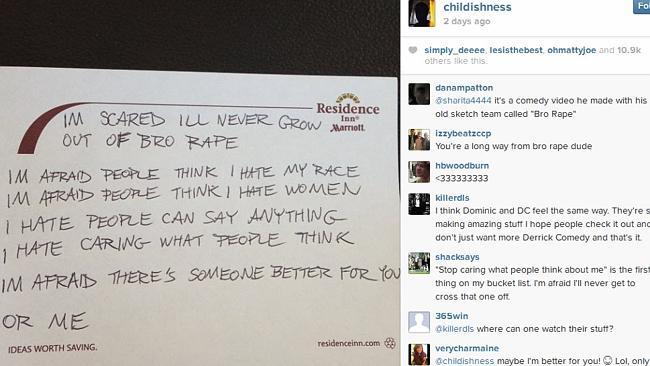 IM SCARED ILL NEVER GROW
OUT OF BRO RAPE
Residence
Inn
Marriott
IM AFRAID PEOPLE THINK I HATE MY RACE
IM AFRAID PEOPLE THINK I HATE WOMEN
I HATE PEOPLE CAN SAY ANYTHING
I HATE CARING WHAT PEOPLE THINK
IM AFRAID THERE'S SOMEONE BETTER FOR YOU
OR ME
IDEAS WORTH SAVING.
residenceinn.com
childishness
2 days ago
simply_deeee, lesisthebest, ohmattyjoe and 10.9k
others like this.
danampatton
@sharita4444 it's a comedy video he made with his
old sketch team called "Bro Rape"
izzybeatzccp
You're a long way from bro rape dude
hbwoodburn
<333333333
killerdls
I think Dominic and DC feel the same way. They're s
making amazing stuff I hope people check it out and
don't just want more Derrick Comedy and that's it.
shacksays
"Stop caring what people think about me" is the first
thing on my bucket list. I'm afraid I'll never get to
cross that one off.
365win
@killerdls where can one watch their stuff?
verycharmaine
@childishness maybe I'm better for you! Lol, only